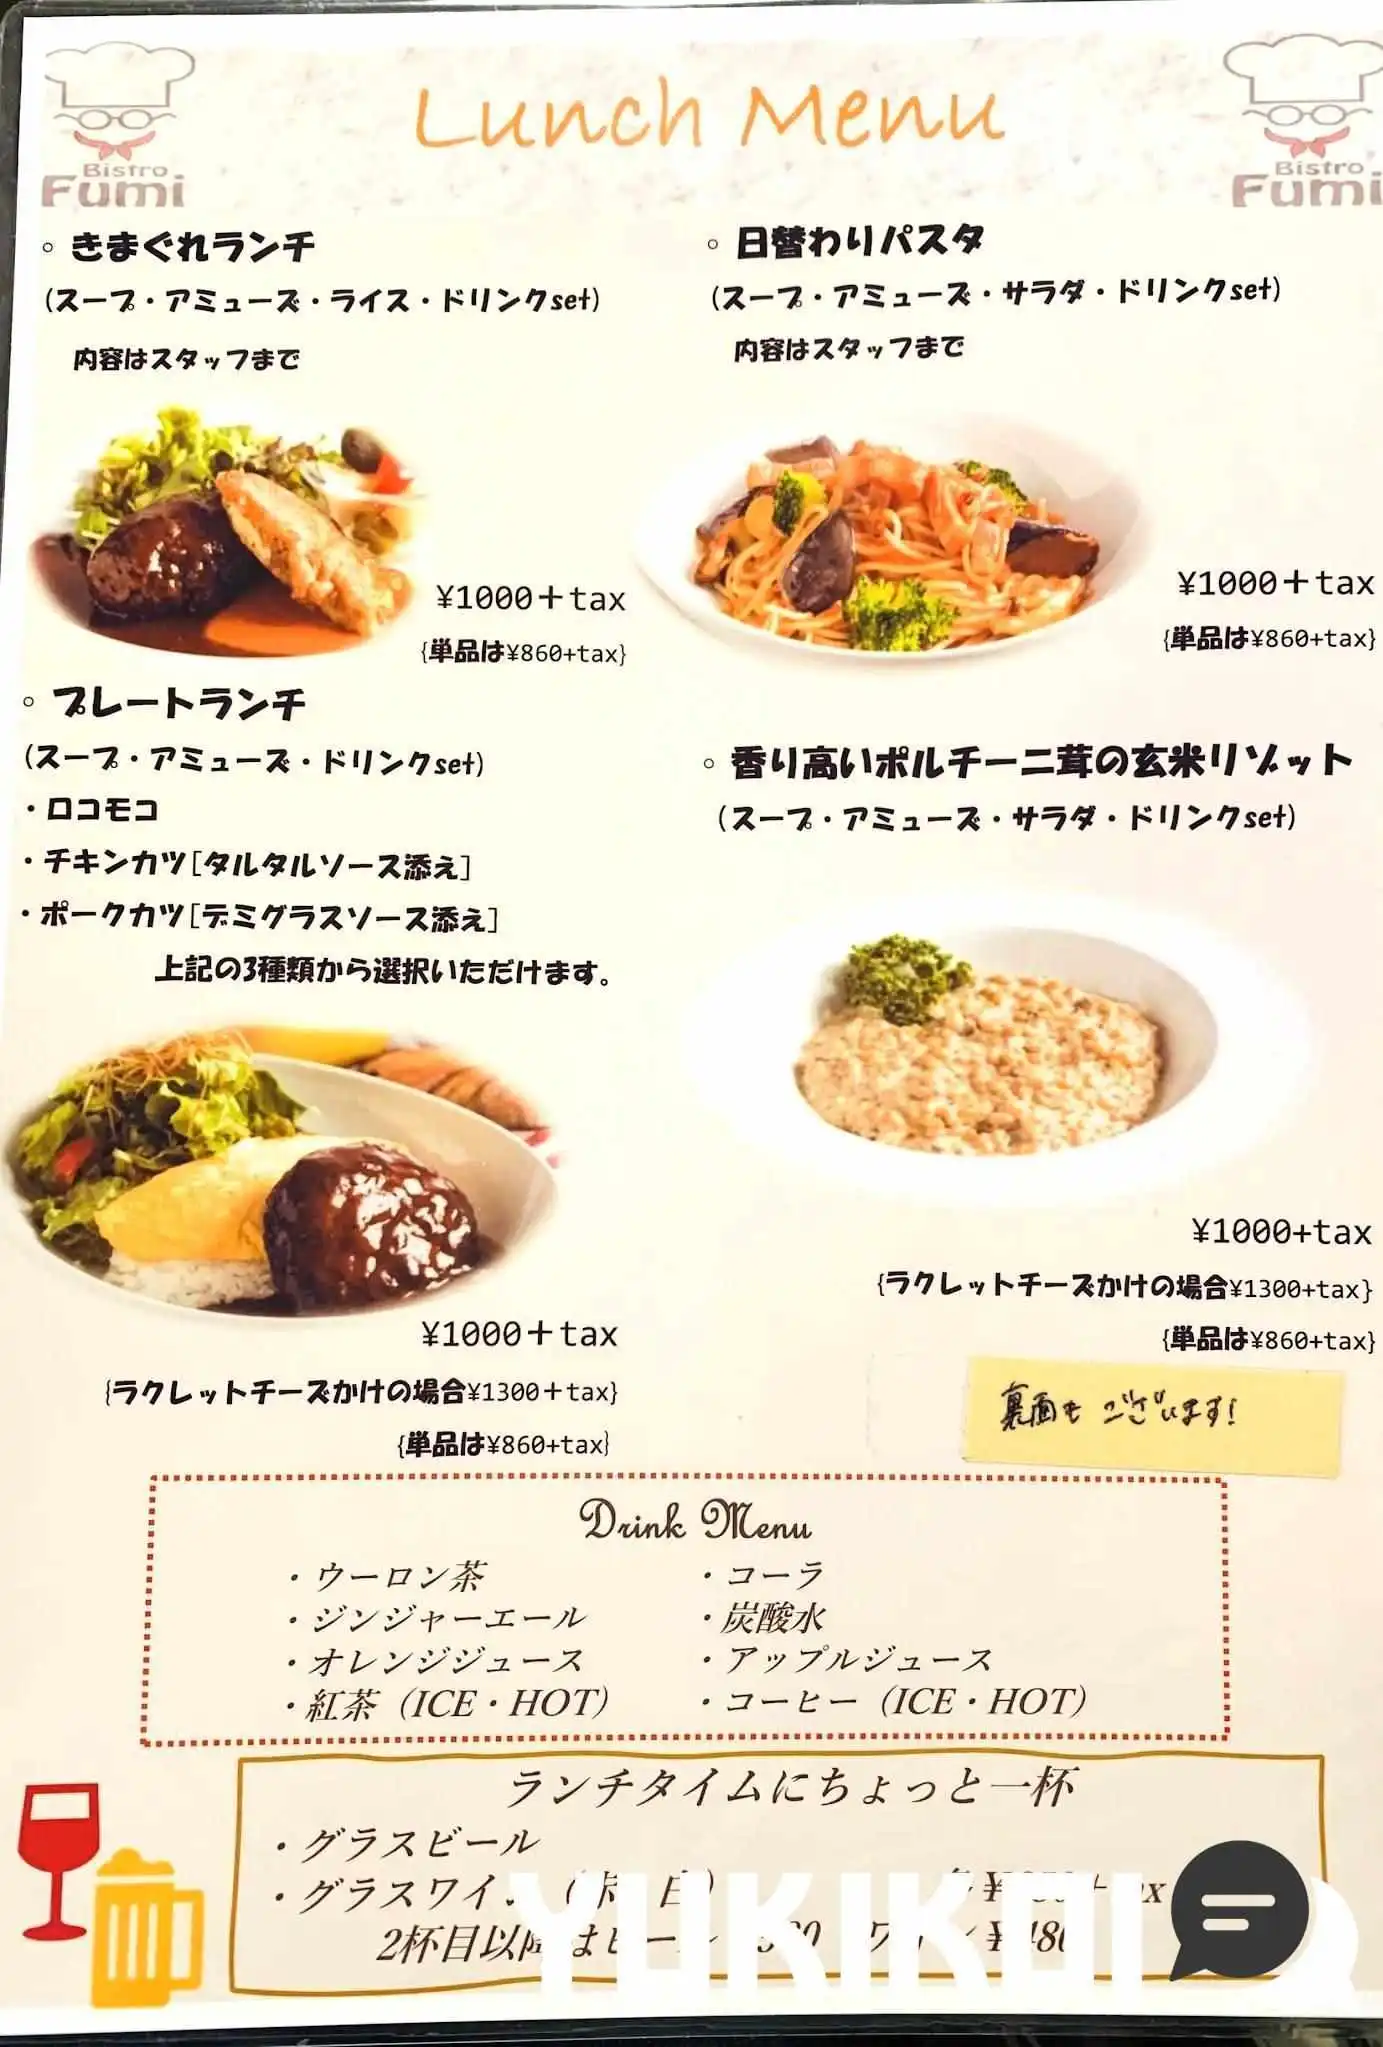 Lunch Menu
Bistro
Fumi
Bistro
Fumi
。きまぐれランチ
(スープ・アミューズ・ライス・ドリンクset)
内容はスタッフまで
¥1000+tax
{単品は¥860+tax}
。日替わりパスタ
(スープ・アミューズ・サラダ・ドリンクset)
内容はスタッフまで
¥1000+tax
{単品は¥860+tax}
。プレートランチ
(スープ・アミューズ・ドリンクset)
・ロコモコ
・チキンカツ[タルタルソース添え]
・ポークカツ[デミグラスソース添え]
上記の3種類から選択いただけます。
¥1000+tax
{ラクレットチーズかけの場合¥1300+tax}
{単品は¥860+tax}
。香り高いポルチーニ茸の玄米リゾット
(スープ・アミューズ・サラダ・ドリンクset)
¥1000+tax
{ラクレットチーズかけの場合¥1300+tax}
{単品は¥860+tax}
裏面もございます!
Drink Menu
・ウーロン茶
・ジンジャーエール
・オレンジジュース
・紅茶（ICE・HOT）
・コーラ
・炭酸水
・アップルジュース
・コーヒー（ICE・HOT）
ランチタイムにちょっと一杯
・グラスビール
・グラスワイン
2杯目以降はビール ワイン¥480
YUKIKOI